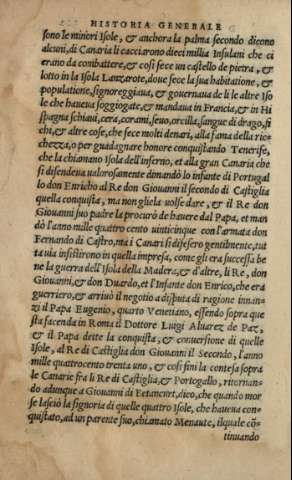 HISTORIA GENERALE
sono le minori Isole, & anchora la palma secondo dicono
alcuni, di Canaria li cacciarono dieci millia Insulani che ci
erano da combattere, & così fece un castello de pietra, &
lotto in la Isola Lanzarote, doue fece la sua habitatione, &
populatione, signoreggiaua, & gouernaua de li le altre Iso
le che haueua soggiogate, & mandaua in Francia, & in Hi
spagna schiaui, cera, corami, seuo, orcilla, sangue di drago, fi
chi, & altre cose, che fece molti denari, alla fama della ric=
chezza, o per guadagnare honore conquistando Tenerife,
che la chiamano Isola dell'inferno, et alla gran Canaria che
si difendeua ualorosamente dimandò lo infante di Portugal
lo don Enricho al Re don Giouanni il secondo di Castiglia
quella conquista, ma non gliela uolse dare, & il Re don
Giouanni suo padre la procurò de hauere dal Papa, et man
dò l'anno mille quattro cento uinticinque con l'armata don
Fernando di Castro, ma i Canari si difesero gentilmente, tut
ta uia insistirono in quella impresa, come gli era successa be
ne la guerra dell'Isola della Madera, & d'altre, li Re, don
Giouanni, & don Duardo, et l'Infante don Enrico, che era
guerriero, & arriuò il negotio a disputa di ragione innan=
zi il Papa Eugenio, quarto Venetiano, essendo sopra que
sta facenda in Roma il Dottore Luigi Aluarez de Paz,
& il Papa dette la conquista, & conuersione di quelle
Isole, al Re di Castiglia don Giouanni il Secondo, l'anno
mille quattrocento trenta uno, & così finì la contesa sopra
le Canarie fra li Re di Castiglia, & Portogallo, ritornan=
do adunque a Giouanni di Betancurt, dico, che quando mor
se lasciò la signoria di quelle quattro Isole, che haueua con=
quistato, ad un parente suo, chiamato Menaute, il quale cō
tinuando